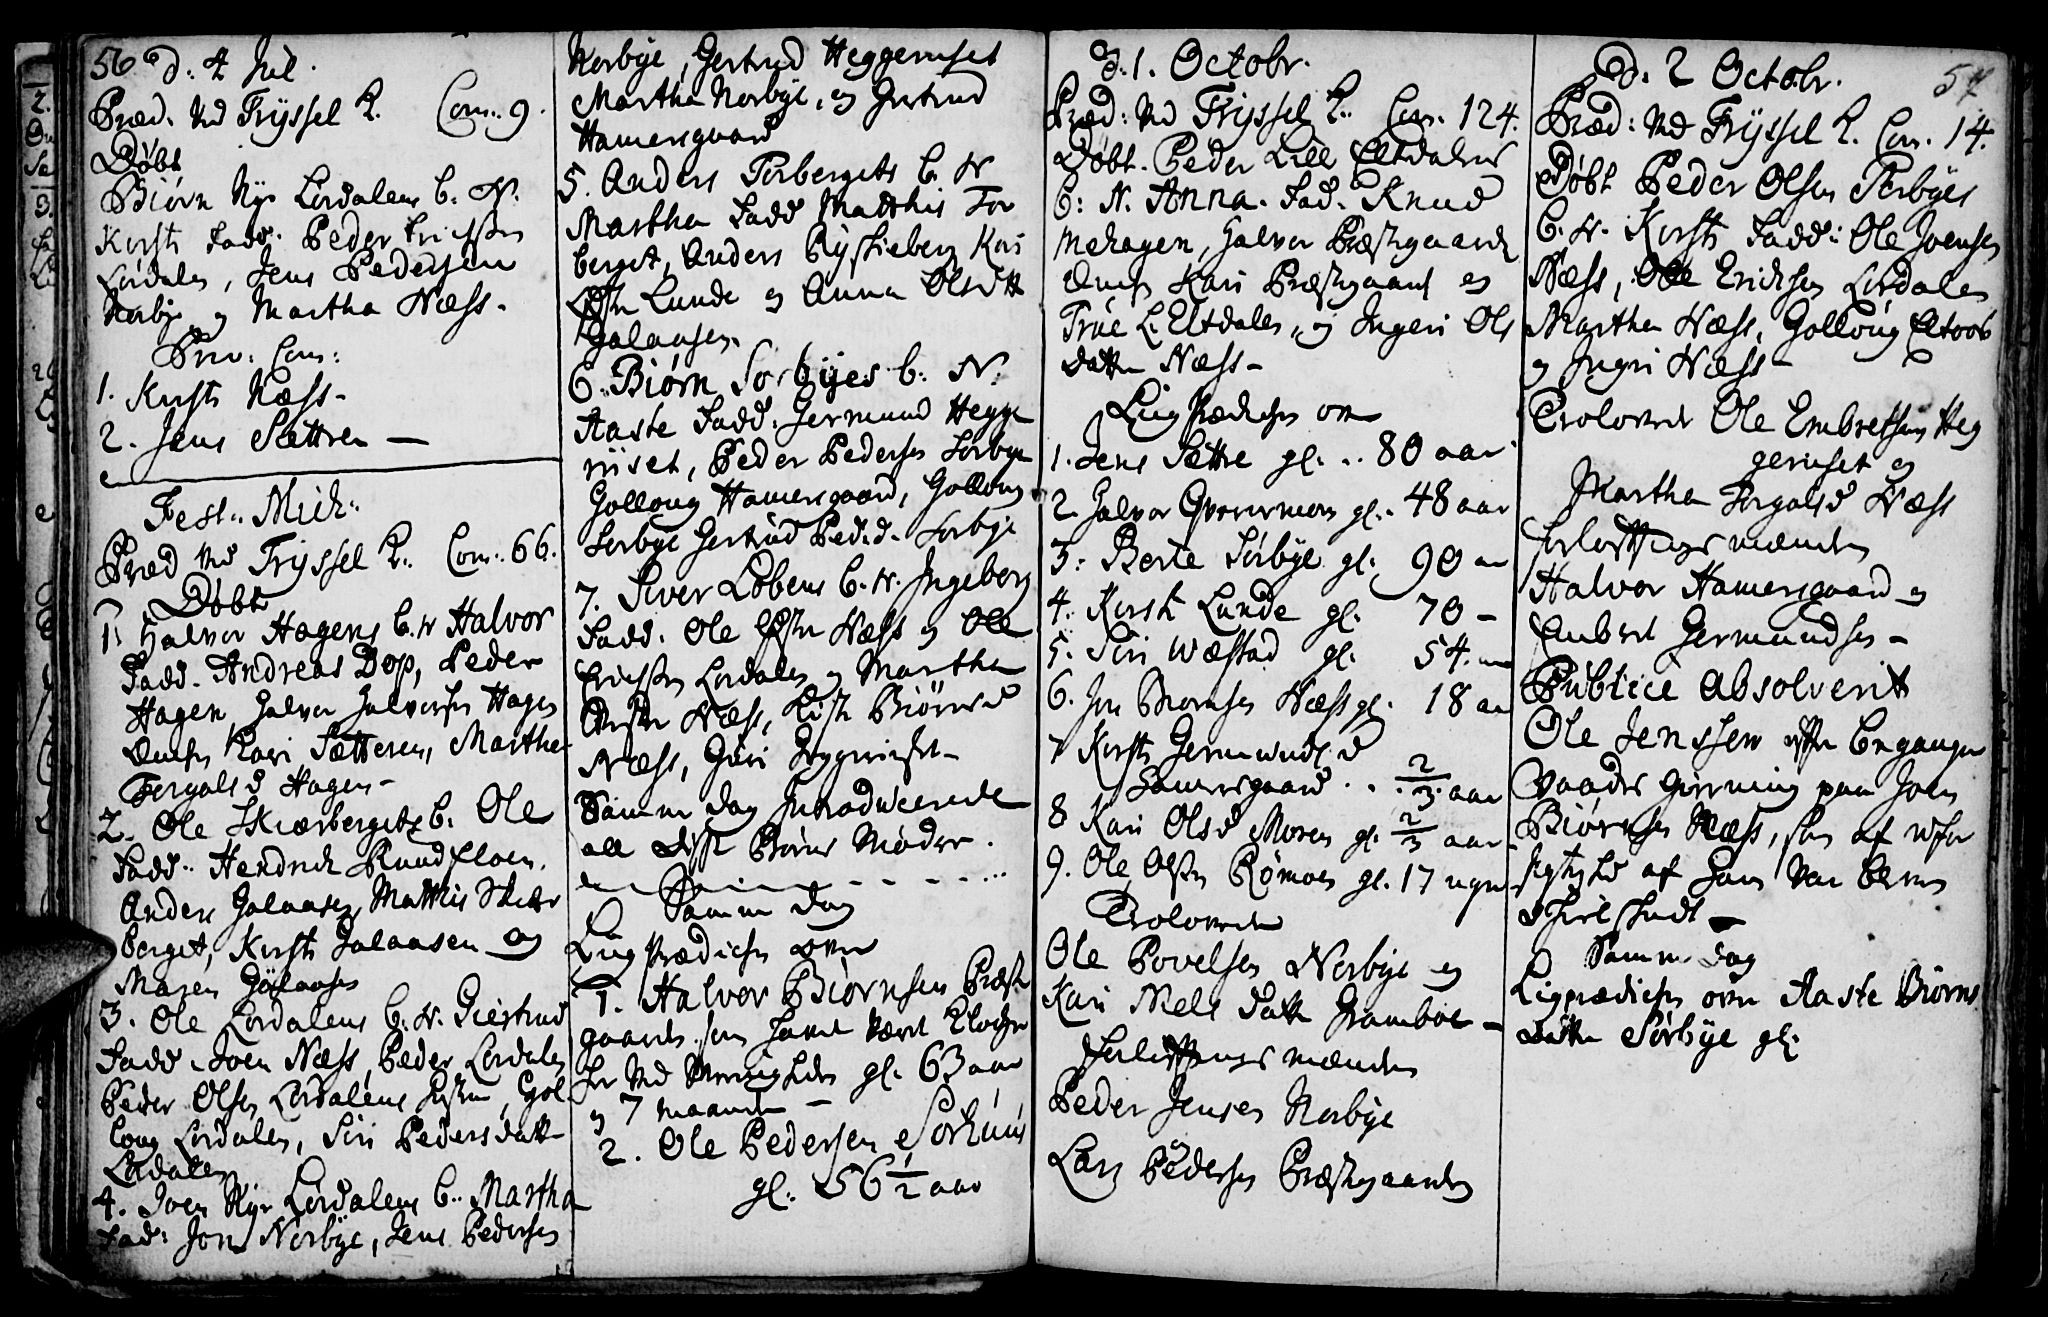 56 d. 4 Jul.
Præd. ved Trÿssel K. Com. 9.
Döbt
Biørn Nÿe Lørdalens b. N.
Kirsti Fadd. Peder Erichsen
Lørdalen, Jens Pedersen
Norbÿe og Martha Næss.
Priv. Com:
1. Kirsti Næss.
2. Jens Sættren
Fest. Mich.
Præd ved Trÿssel K. Com. 66.
Döbt
1. Halvor Hagens b. N Halvor
Fadd. Andreas Dop, Peder
Hagen, Halvor Halvorsen Hagen
Kari Sætteren, Marthe
Torgalsd Hagen
2. Ole Skiærbergets b. Ole
Fadd. Hendrich Rundfloen,
Anders Galaasen, Matthis
berget, Kirsti Galaasen og
Maren Galaasen
3. Ole Lørdalens b. N. Giertrud
Fadd. Joen Næss, Peder Lørdalen
Peder Olsen Lørdalens, Gol
loug Lørdalen, Siri Pedersdatt
Lørdalen
4. Joen Nÿe Lørdalens b. Martha
Fad: Jon Norbÿe, Jens Pedersen
Norbÿe, Gertrud Heggeriset
Martha Norbÿe, og Gertrud
Hamersgaard
5. Anders Torbergets b. N
Martha Fadd Matthis Tor
berget, Anders Rÿskieberg Kari
Lunde og Anna Olsdtt
Galaasen.
6. Biørn Sørbÿes b. N.
Aaste Fadd. Germund Hegge
riiset, Peder Pedersen Sørbÿe
Golloug Hamersgaard, Golloug
Sørbÿe Gertrud Ped.d. Sørbÿe
7. Siver Löbens b. N. Ingeborg
Fadd. Ole Næss og Ole
Erichsen Lørdalen og Martha
Næss, Biørnsd
Næss, Guri Heggeriset
Samme dag Introduceerede
alle disse Börns Mödre.
Samme dag
Liigprædichen over
1. Halvor Biørnsen Præst
gaarden som hafde været Klocher
her ved gl. 63 aar
og 7 maaneder
2. Ole Pedersen Sörhuus
gl. 56 1/2 aar
d. 1. Octobr.
Præd: ved Trÿssel K. Com. 124.
Döbt. Peder Lill Eltdalens
b: N. Anna. Fad. Knud
Mehagen, Halvor Præstgaarden
Kari Præstgaard og
Trüe L. Eltdalen, og Ingeri Ols
datter Næss
Liigprædichen over
1. Jens Sættre gl. .. 80 aar
2. Halvor Qvernmoen gl. 48 aar
3. Berte Sörbÿe gl. 90 aar
4. Kirsti Lunde gl. 70
5. Siri Wæstad gl. 54.
6. Jon Biörnsen Næss gl. 18 aar
7 Kirsti Germundsd
Hamersgaard .. 2/3 aar
8 Kari Olsd Moren gl. 2/3 aar
9. Ole Olsen Römoen gl. 17 uger
Trolovede
Ole Povelsen Norbÿe og
Kari Niels datter Gramboe
Forløftnings mænden
Peder Jensen Norbÿe
og
Lars Pedersen Præstegaarden
d. 2 Octobr. 57
Præd: ved Trÿssel K. Com. 14.
Döbt Peder Olsen Norbÿes
b. N. Kirsti Fadd: Ole Joensen
Næss, Ole Erichsen Lørdalen
Martha Næss, Golloug Eltoes
og Ingri Næss
Trolovede Ole Embretsen Heg
geriset og
Martha Torgalsd Næss
Forløftnings mænden
Halvor Hamersgaard og
Embret Germundsen
Publice Absolverit
Ole Jenssen efter begangen
Vaades Gierning paa Joen
Biørnsen Næss, som af ufor
sigtighed af ham var bleven
ihiel skudt
Samme dag
Ligprædichen over Aaste Biørns
datter Sörbÿe gl: